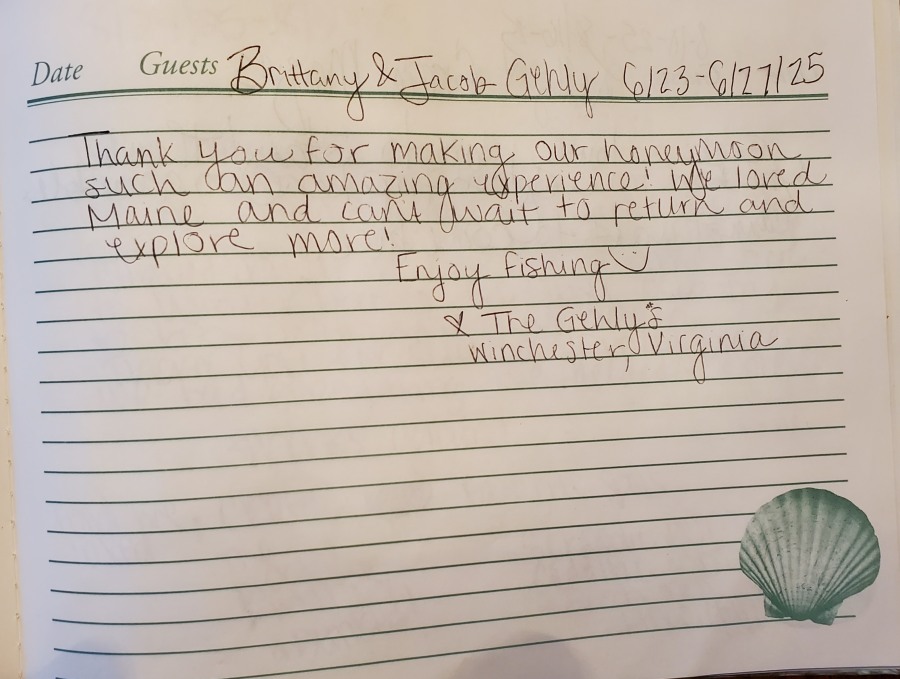 Date Guests Brittany & Jacob Gehly 6/23-6/27/25
Thank you for making our honeymoon
such an amazing experience! We loved
Maine and can't wait to return and
explore more!
Enjoy fishing
The Gehly's
Winchester, Virginia